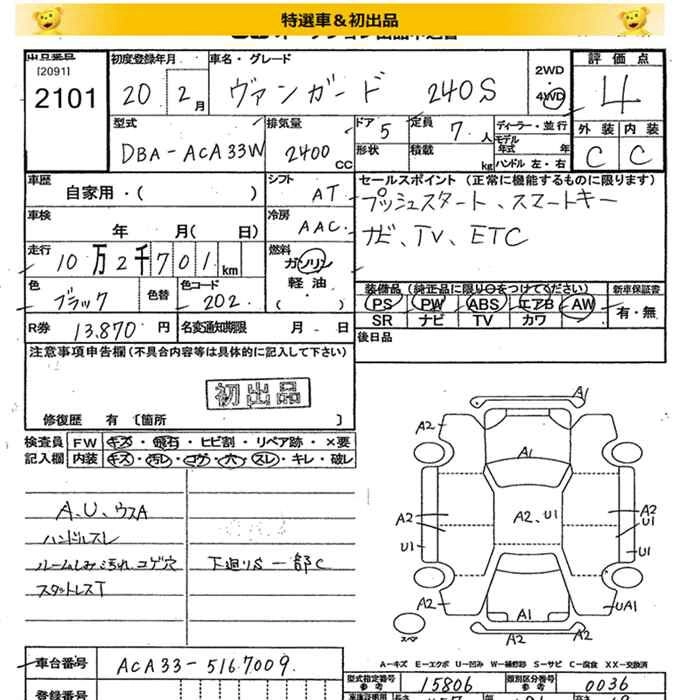 特選車＆初出品
[2091]
2101
初度登録年月
20 2月
車名・グレード
ヴァンガード 240S
2WD
4WD
評価点
4
外装 内装
C C
型式
DBA-ACA33W
排気量
2400cc
ドア 5
定員 7人
形状
積載 kg
ディーラー・並行
モデル年式 年
ハンドル 左・右
車歴
自家用・( )
シフト
AT
セールスポイント (正常に機能するものに限ります)
プッシュスタート、スマートキー
ナビ、TV、ETC
車検
年 月( 日)
冷房
AAC
走行
10万2千701km
燃料
ガソリン
軽油
( )
色
ブラック
色替
色コード
202
装備品 (純正品に限り○をつけてください)
PS PW ABS エアB AW
SR ナビ TV カワ
新車保証書
有・無
R券 13,870円
名変通知期限 月 日
後日品
注意事項申告欄(不具合内容等は具体的に記入して下さい)
初出品
修復歴 有 〔箇所 〕
検査員 FW キズ・飛石・ヒビ割・リペア跡・×要
記入欄 内装 キズ・汚レ・コゲ・穴・スレ・キレ・破レ
A、U、ウスA
ハンドルスレ
ルームしみ汚れ、コゲ穴
スタットレスT
下廻りS 一部C
A1
A2
A1
A2
A2、U1
A2
U1
U1
A2
A1
UA1
A2
A2
スペア
A-キズ E-エクボ U-凹み W-補修跡 S-サビ C-腐食 XX-交換済
車台番号
ACA33-5167009
型式指定番号 参考
15806
類別区分番号 参考
0036
登録番号